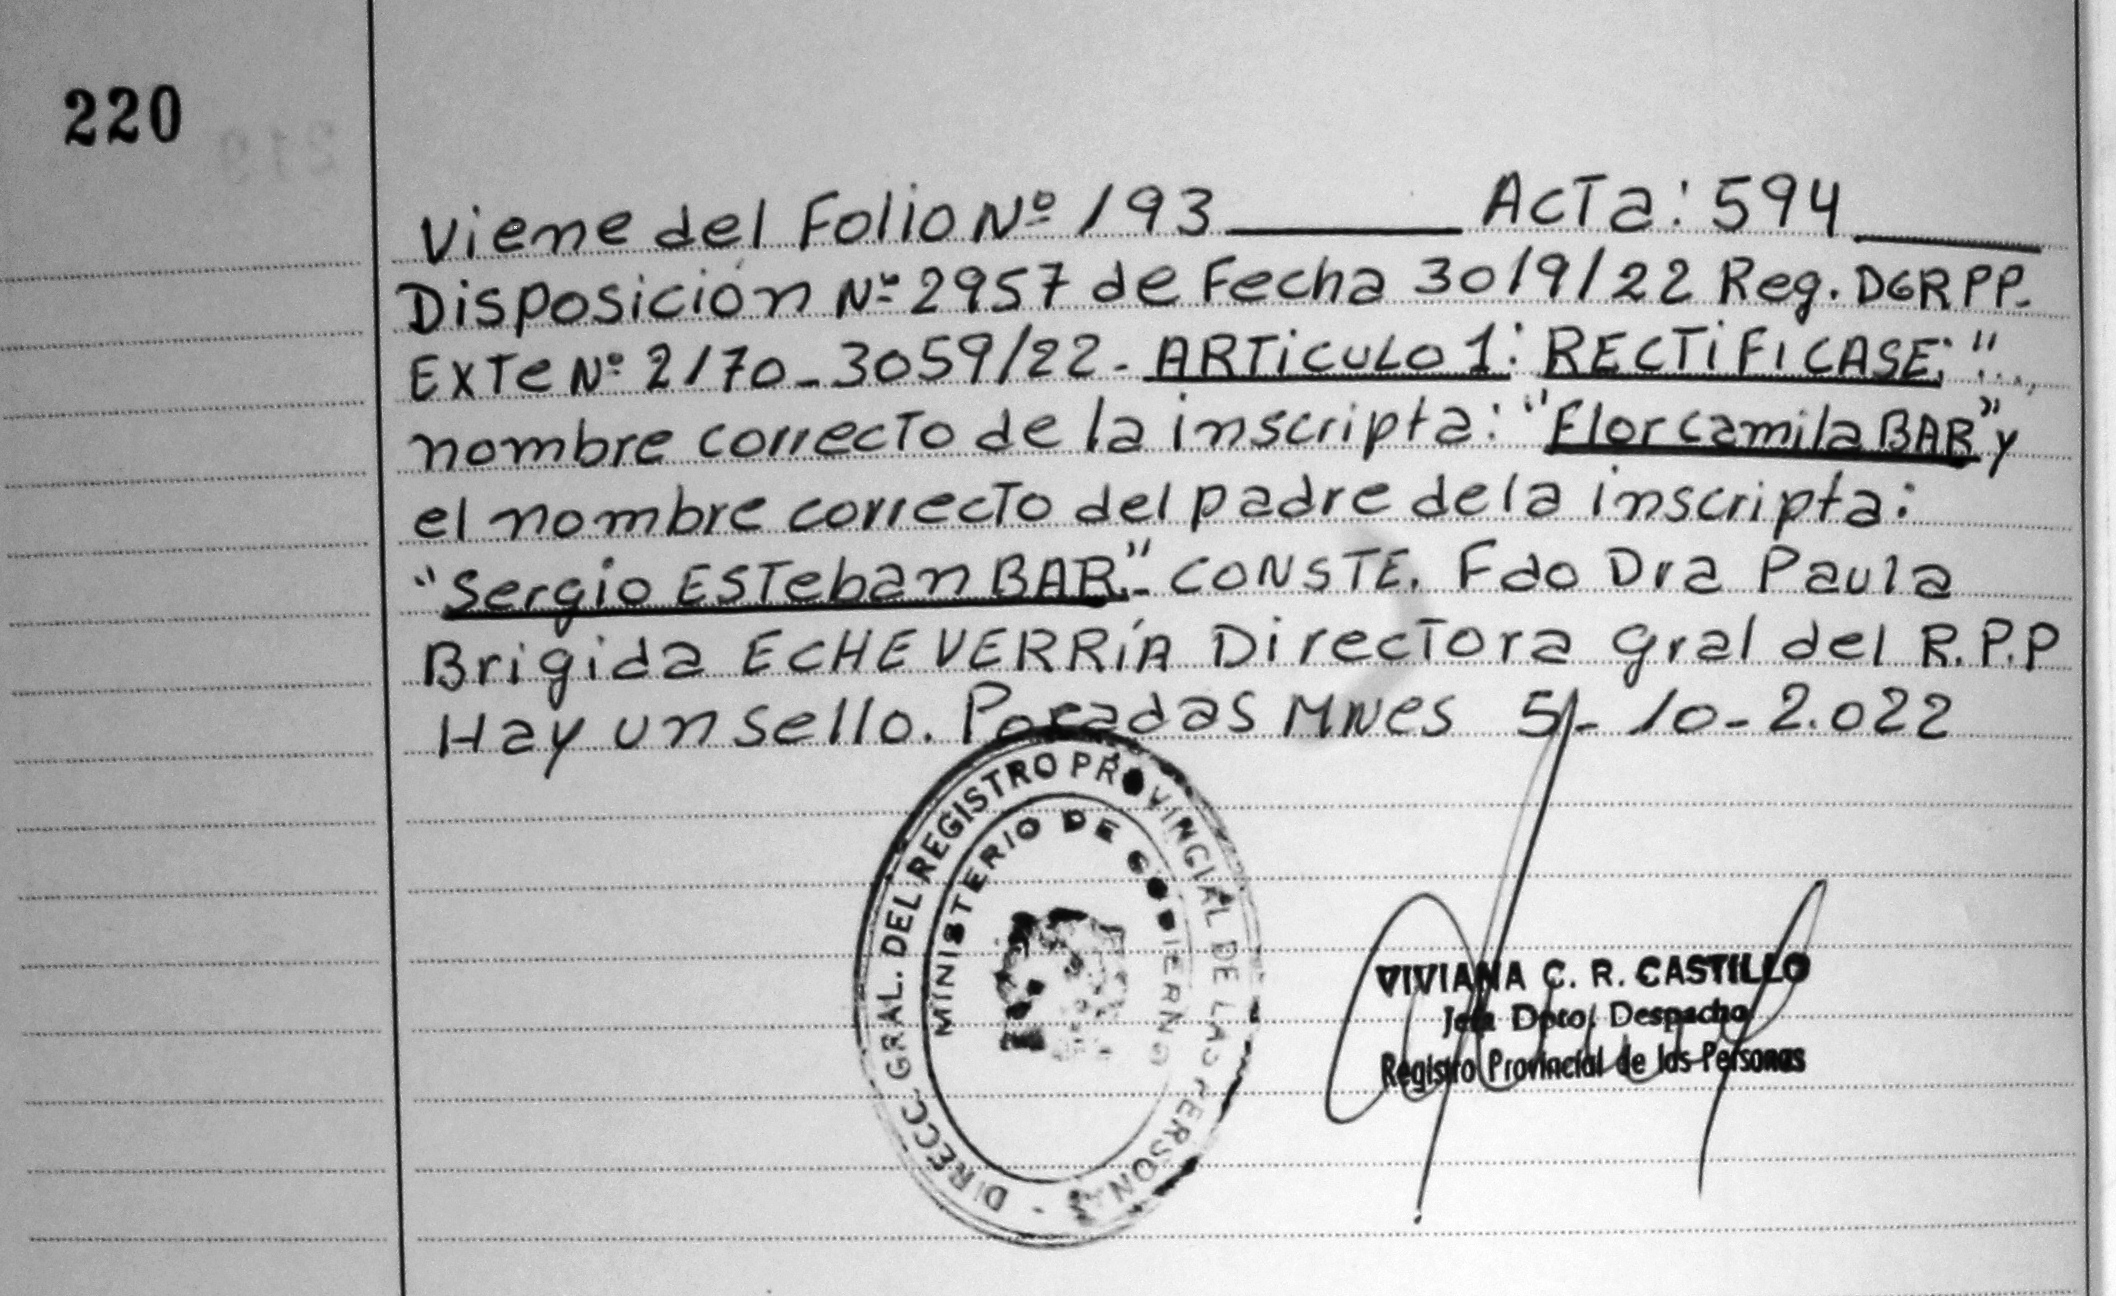 220
Viene del Folio Nº 193 ______ Acta: 594 ______
Disposición Nº 2957 de Fecha 30/9/22 Reg. DGRPP.
EXTe Nº 2170_3059/22. ARTiCULO 1: RECTiFICASE: "....
nombre correcto de la inscripta: "Flor Camila BAR" y
el nombre correcto del padre de la inscripta:
"Sergio Esteban BAR". CONSTE. Fdo Dra Paula
Brigida ECHEVERRíA Directora gral del R.P.P
Hay un sello. Posadas Mnes 5-10-2.022
DIRECC. GRAL. DEL REGISTRO PROVINCIAL DE LAS PERSONAS
MINISTERIO DE GOBIERNO
VIVIANA C. R. CASTILLO
Jefa Dpto. Despacho
Registro Provincial de las Personas